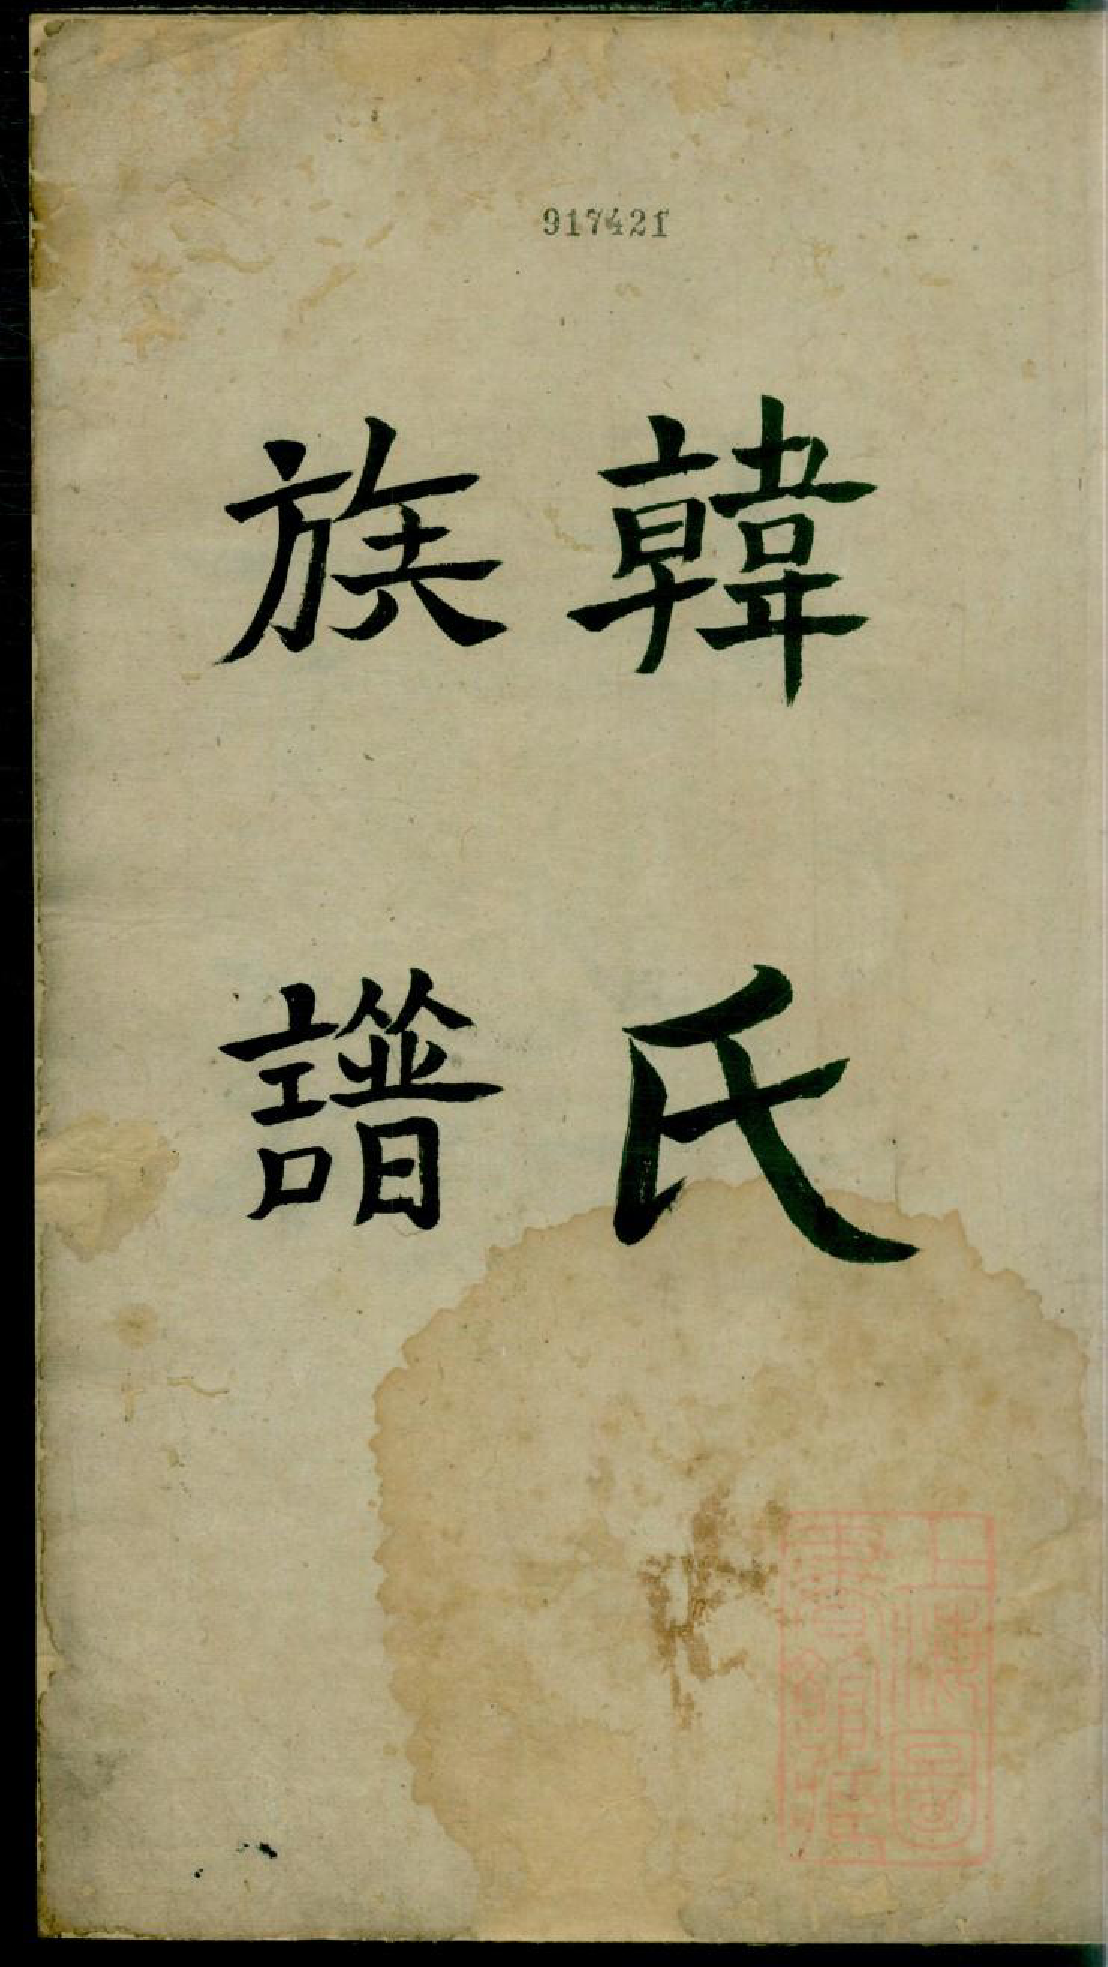 917421
韓氏
族譜
上海圖
書館藏